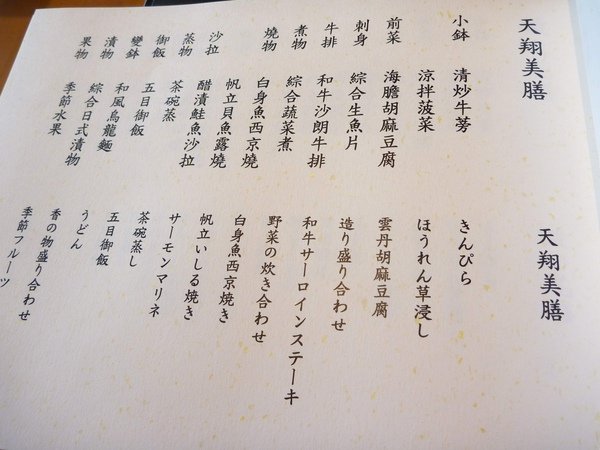 天翔美膳
小鉢 清炒牛蒡
涼拌菠菜
前菜 海膽胡麻豆腐
刺身 綜合生魚片
牛排 和牛沙朗牛排
煮物 綜合蔬菜煮
燒物 白身魚西京燒
帆立貝魚露燒
沙拉 醋漬鮭魚沙拉
蒸物 茶碗蒸
御飯 五目御飯
變鉢 和風烏龍麵
漬物 綜合日式漬物
果物 季節水果
天翔美膳
きんぴら
ほうれん草浸し
雲丹胡麻豆腐
造り盛り合わせ
和牛サーロインステーキ
野菜の炊き合わせ
白身魚西京焼き
帆立いしる焼き
サーモンマリネ
茶碗蒸し
五目御飯
うどん
香の物盛り合わせ
季節フルーツ